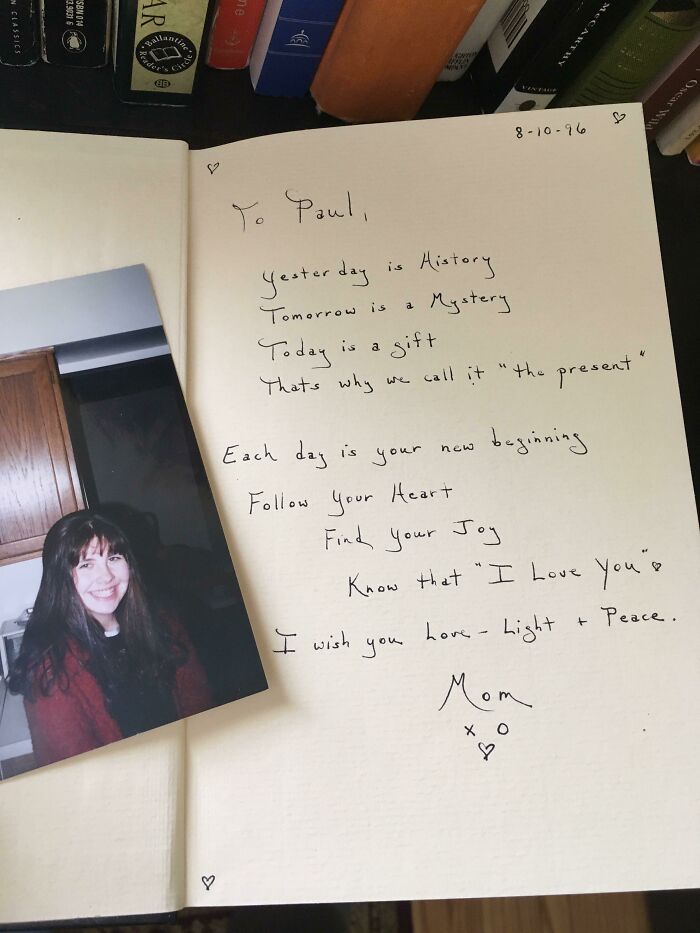 CLASSICS
ISBN 014
AR
Ballantine
Reader's Circle
BB
McCARTHY
VINTAGE
Oscar Wild
8-10-96
To Paul,
Yesterday is History
Tomorrow is a Mystery
Today is a gift
Thats why we call it "the present"
Each day is your new beginning
Follow Your Heart
Find Your Joy
Know that "I Love You"
I wish you Love - Light + Peace.
Mom
x o